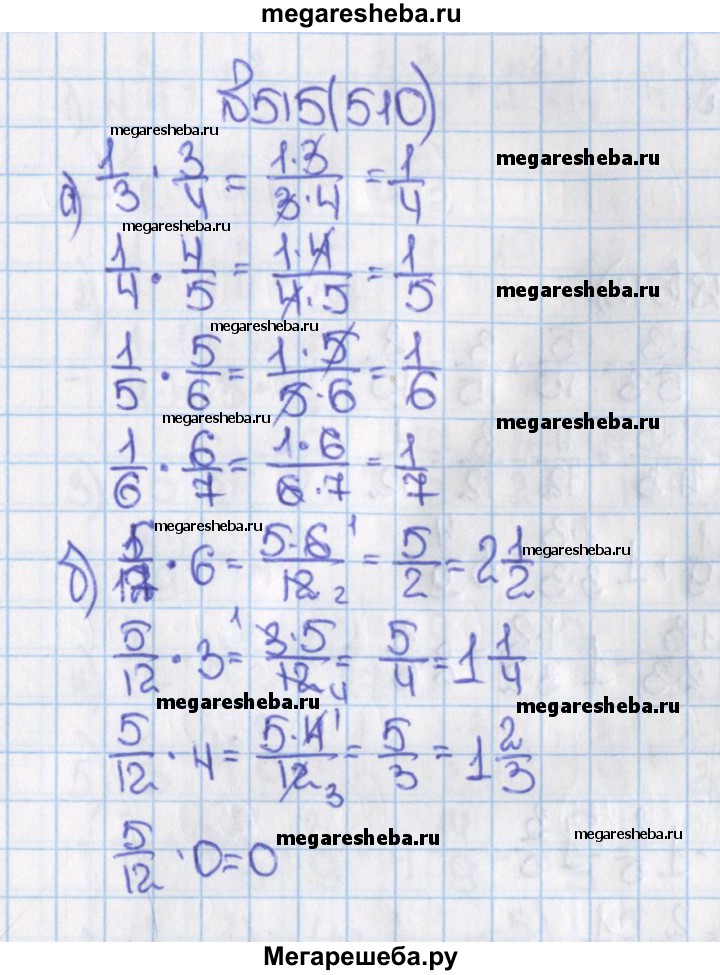 megaresheba.ru
№515(510)
megaresheba.ru
а) 1/3 · 3/4 = 1·3/3·4 = 1/4
megaresheba.ru
megaresheba.ru
1/4 · 4/5 = 1·4/4·5 = 1/5
megaresheba.ru
megaresheba.ru
1/5 · 5/6 = 1·5/5·6 = 1/6
megaresheba.ru
megaresheba.ru
1/6 · 6/7 = 1·6/6·7 = 1/7
megaresheba.ru
б) 5/12 · 6 = 5·6 1/12 2 = 5/2 = 2 1/2
megaresheba.ru
5/12 · 3 = 1 3·5/12 4 = 5/4 = 1 1/4
megaresheba.ru
megaresheba.ru
5/12 · 4 = 5·4 1/12 3 = 5/3 = 1 2/3
megaresheba.ru
megaresheba.ru
5/12 · 0 = 0
Мегарешеба.ру